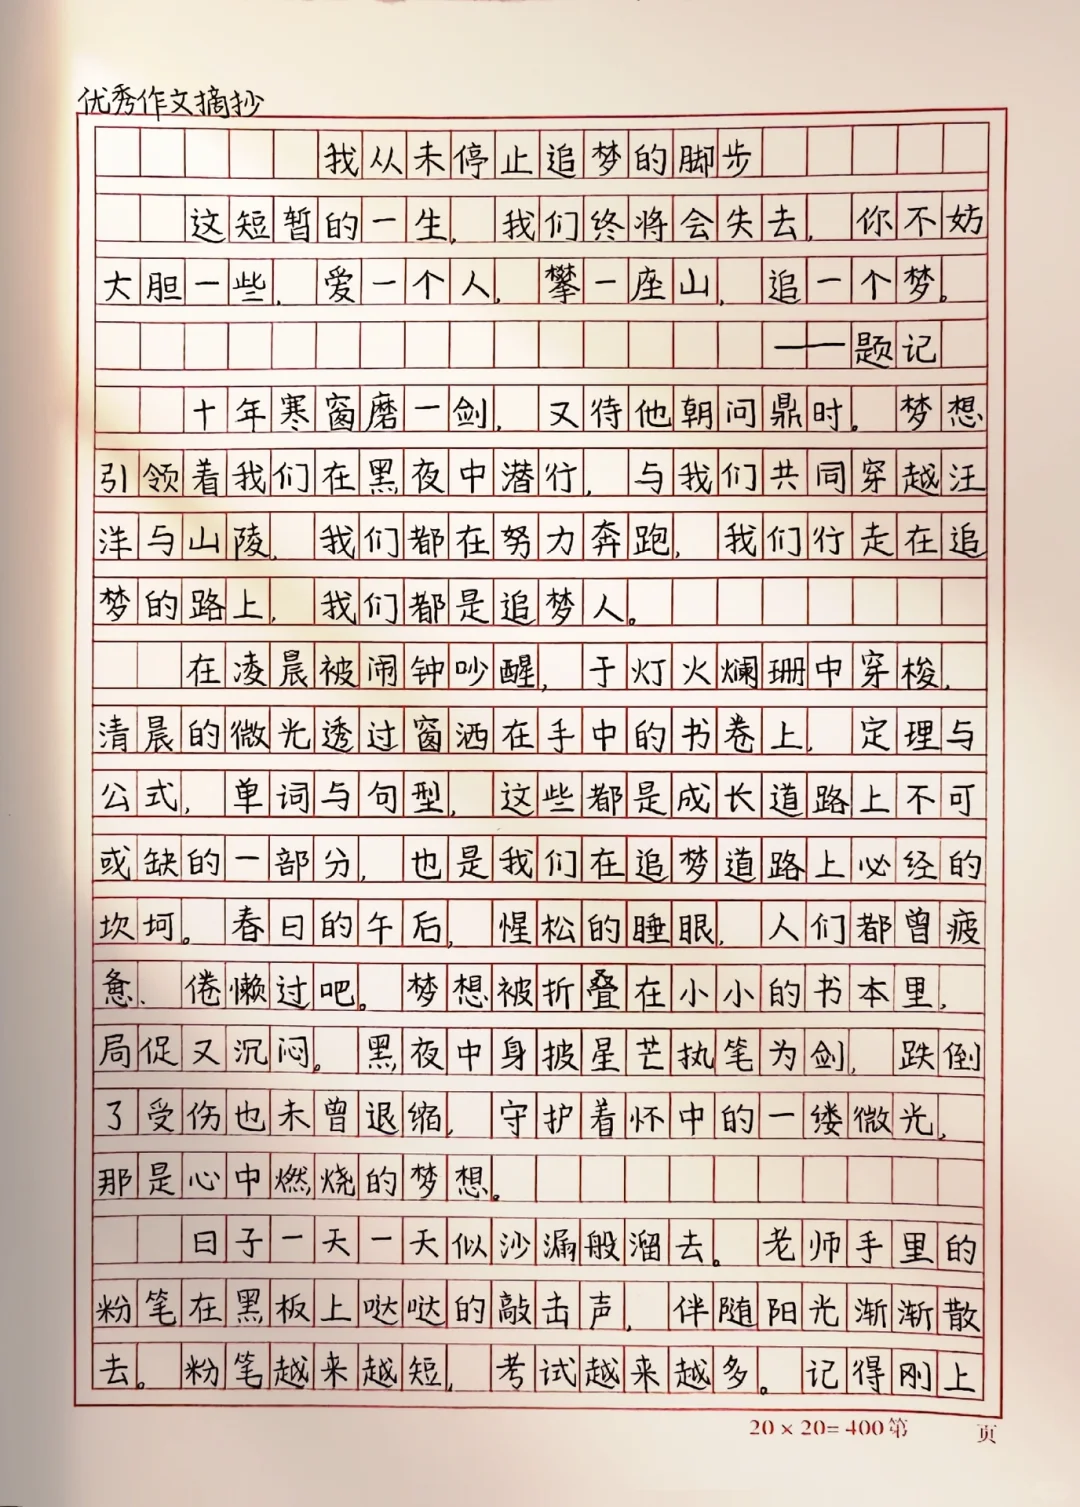 优秀作文摘抄
我从未停止追梦的脚步
这短暂的一生，我们终将会失去，你不妨
大胆一些，爱一个人，攀一座山，追一个梦。
——题记
十年寒窗磨一剑，又待他朝问鼎时。梦想
引领着我们在黑夜中潜行，与我们共同穿越汪
洋与山陵，我们都在努力奔跑，我们行走在追
梦的路上，我们都是追梦人。
在凌晨被闹钟吵醒，于灯火斓珊中穿梭，
清晨的微光透过窗洒在手中的书卷上，定理与
公式，单词与句型，这些都是成长道路上不可
或缺的一部分，也是我们在追梦道路上必经的
坎坷。春日的午后，惺松的睡眼，人们都曾疲
惫、倦懒过吧。梦想被折叠在小小的书本里，
局促又沉闷。黑夜中身披星芒执笔为剑，跌倒
了受伤也未曾退缩，守护着怀中的一缕微光，
那是心中燃烧的梦想。
日子一天一天似沙漏般溜去。老师手里的
粉笔在黑板上哒哒的敲击声，伴随阳光渐渐散
去。粉笔越来越短，考试越来越多。记得刚上
20×20=400 第 页